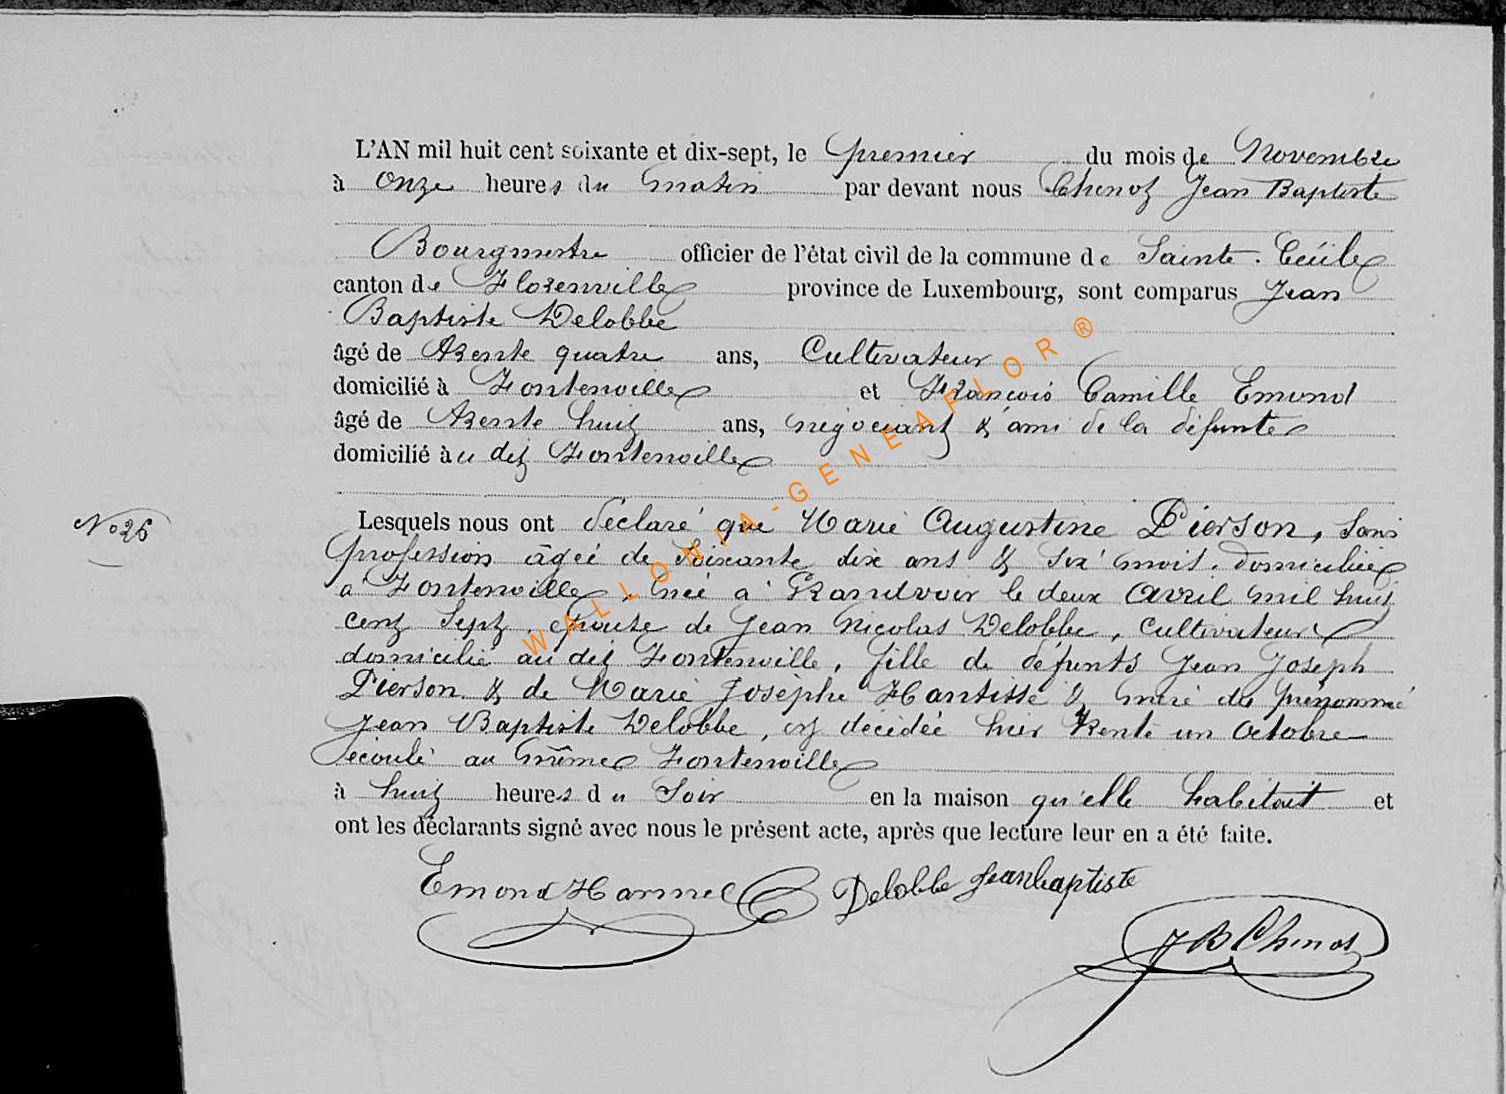 L'AN mil huit cent soixante et dix-sept, le premier du mois de Novembre
à onze heures du matin par devant nous Chenot Jean Baptiste
Bourgmestre officier de l'état civil de la commune de Sainte-Cécile
canton de Florenville province de Luxembourg, sont comparus Jean
Baptiste Delobbe
âgé de trente quatre ans, Cultivateur
domicilié à Fontenoille et François Camille Emond
âgé de trente huit ans, négociant & ami de la défunte
domicilié au dit Fontenoille
No 26
Lesquels nous ont déclaré que Marie Augustine Pierson, sans
profession âgée de soixante dix ans & six mois, domiciliée
à Fontenoille, née à Grandvoir le deux Avril mil huit
cent sept, épouse de Jean Nicolas Delobbe, cultivateur
domicilié au dit Fontenoille, fille de défunts Jean Joseph
Pierson & de Marie Josèphe Hantisse & mère du prénommé
Jean Baptiste Delobbe, est décédée hier trente un Octobre
écoulé au même Fontenoille
à huit heures du soir en la maison qu'elle habitait et
ont les déclarants signé avec nous le présent acte, après que lecture leur en a été faite.
Emond Hannel Delobbe jeanbaptiste
JB Chenot
WALLONIA-GENEAFLOR ®